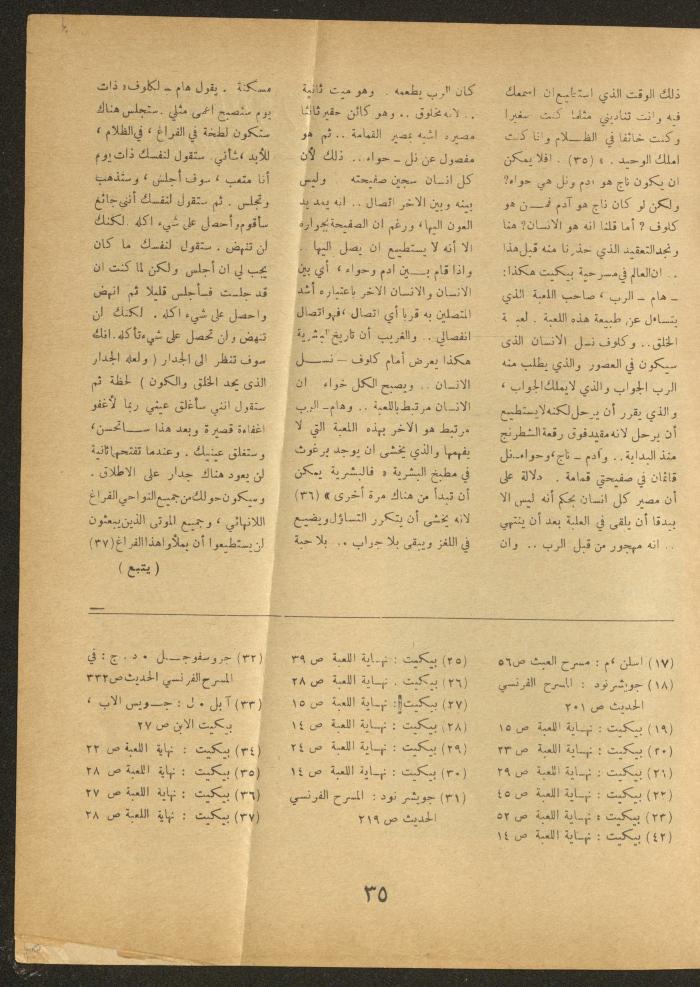 ذلك الوقت الذي استطيع ان اسمعك
فيه وانت تناديني مثلما كنت صغيرا
وكنت خائفا في الظـــلام وانا كنت
املك الوحيد . » (٣٥) . افلا يمكن
ان يكون ناج هو ادم ونل هي حواء؟
ولكن لو كان ناج هو آدم فمـــن هو
كلوف ? أما قلنا انه هو الانسان? هنا
ونجد التعقيد الذي حذرنا منه قبل هذا
.. ان العالم في مسرحية بيكيت هكذا:
ــ هام ــ الرب ، صاحب اللعبة الذي
يتساءل عن طبيعة هذه اللعبة . لعبــة
الخلق.. وكلوف نسل الانسان الذى
سيكون في العصور والذي يطلب منه
الرب الجواب والذي لايملك الجواب ،
والذي يقرر أن يرحل لكنه لايستطيع
أن يرحل لانه مقيد فوق رقعة الشطرنج
منذ البداية.. وآدم ــ ناج، وحواءــ نل
قائمان في صفيحتي قمامة . دلالة على
أن مصير كل انسان بحكم أنه ليس الا
بيدقا أن يلقى في العلبة بعد أن ينتهي
.. انه مهجور من قبل الرب .. وان
كان الرب يطعمه . وهو ميت ثانية
.. لانه مخلوق .. وهو كائن حقير ثالثا
مصيره اشبه بمصير القمامة .. ثم هو
مفصول عن نل ــ حواء .. ذلك لأن
كل انسان سجين صفيحته . وليس
بينه وبين الاخر اتصال .. انه يمد يد
العون اليها، ورغم ان الصفيحة بجواره
الا أنه لا يستطيع ان يصل اليها .
واذا قام بـــين ادم وحواء ، أي بين
الانسان والانسان الاخر باعتباره أشد
المتصلين به قربا أي اتصال ،فهو اتصال
انفصالي .. والغريب أن تاريخ البشرية
هكذا يعرض أمام كلوف ــ نســـل
الانسان .. ويصبح الكل خواء ان
الانسان مرتبط باللعبة .. وهام ــ الرب
مرتبط هو الاخر بهذه اللعبة التي لا
يفهمها والذي يخشى ان يوجد برغوث
في مطبخ البشرية « فالبشرية يمكن
أن تبدأ من هناك مرة أخرى » (٣٦)
لانه يخشى أن يتكرر التساؤل ويضيع
في اللغز ويبقى بلا جواب .. بلا حبة
مسكنة . يقول هام ــ لكلوف: ذات
يوم ستصبح اعمى مثلي . ستجلس هناك
ستكون لطخة في الفراغ ، في الظلام ،
للأبد ، شأني . ستقول لنفسك ذات يوم
أنا متعب ، سوف أجلس ، وستذهب
وتجلس . ثم ستقول لنفسك أنني جائع
سأقوم وأحصل على شيء اكله . لكنك
لن تنهض . ستقول لنفسك ما كان
يجب لي ان أجلس ولكن لما كنت ان
قد جلست فسأجلس قليلا ثم انهض
واحصل على شيء اكله . لكنك لن
تنهض ولن تحصل على شيء تأكله. انك
سوف تنظر الى الجدار ( ولعله الجدار
الذى يحد الخلق والكون ) لحظة ثم
ستقول انني سأغلق عيني ربما لأغفو
اغفاءة قصيرة وبعد هذا ســـاتحسن،
وستغلق عينيك . وعندما تفتحها ثانية
لن يعود هناك جدار على الاطلاق .
وسيكون حولك من جميع النواحي الفراغ
اللانهائي ، وجميع الموتى الذين يبعثون
لن يستطيعوا أن يملأوا هذا الفراغ (٣٧)
( يتبع )
(١٧) اسلن ،م : مسرح العبث ص ٥٦
(١٨) جويشر نود : المسرح الفرنسي
الحديث ص ٢٠١
(١٩) بيكيت : نهـاية اللعبة ص ١٥
(٢٠) بيكيت : نهـاية اللعبة ص ٢٣
(٢١) بيكيت : نهـاية اللعبة ص ٢٩
(٢٢) بيكيت : نهـاية اللعبة ص ٤٥
(٢٣) بيكيت : نهـاية اللعبة ص ٥٢
(٤٢) بيكيت : نهـاية اللعبة ص ١٤
(٢٥) بيكيت : نهـاية اللعبة ص ٣٩
(٢٦) بيكيت . نهـاية اللعبة ص ٢٨
(٢٧) بيكيت : نهـاية اللعبة ص ١٥
(٢٨) بيكيت : نهـاية اللعبة ص ١٤
(٢٩) بيكيت : نهـاية اللعبة ص ٢٤
(٣٠) بيكيت : نهـاية اللعبة ص ١٤
(٣١) جويشر نود : المسرح الفرنسي
الحديث ص ٢١٩
(٣٢) جروسفوجــل . د . ج : في
المسرح الفرنسي الحديث ص ٣٣٢
(٣٣) آ بل . ل : جـويس الاب ،
بيكيت الابن ص ٢٧
(٣٤) بيكيت : نهاية اللعبة ص ٢٢
(٣٥) بيكيت : نهاية اللعبة ص ٢٨
(٣٦) بيكيت : نهاية اللعبة ص ٢٧
(٣٧) بيكيت : نهاية اللعبة ص ٢٨
٣٥